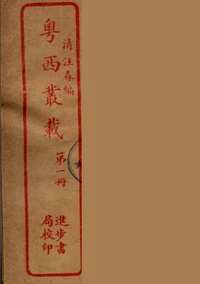 清汪森編
粤西叢載
第一冊
進步書
局校印